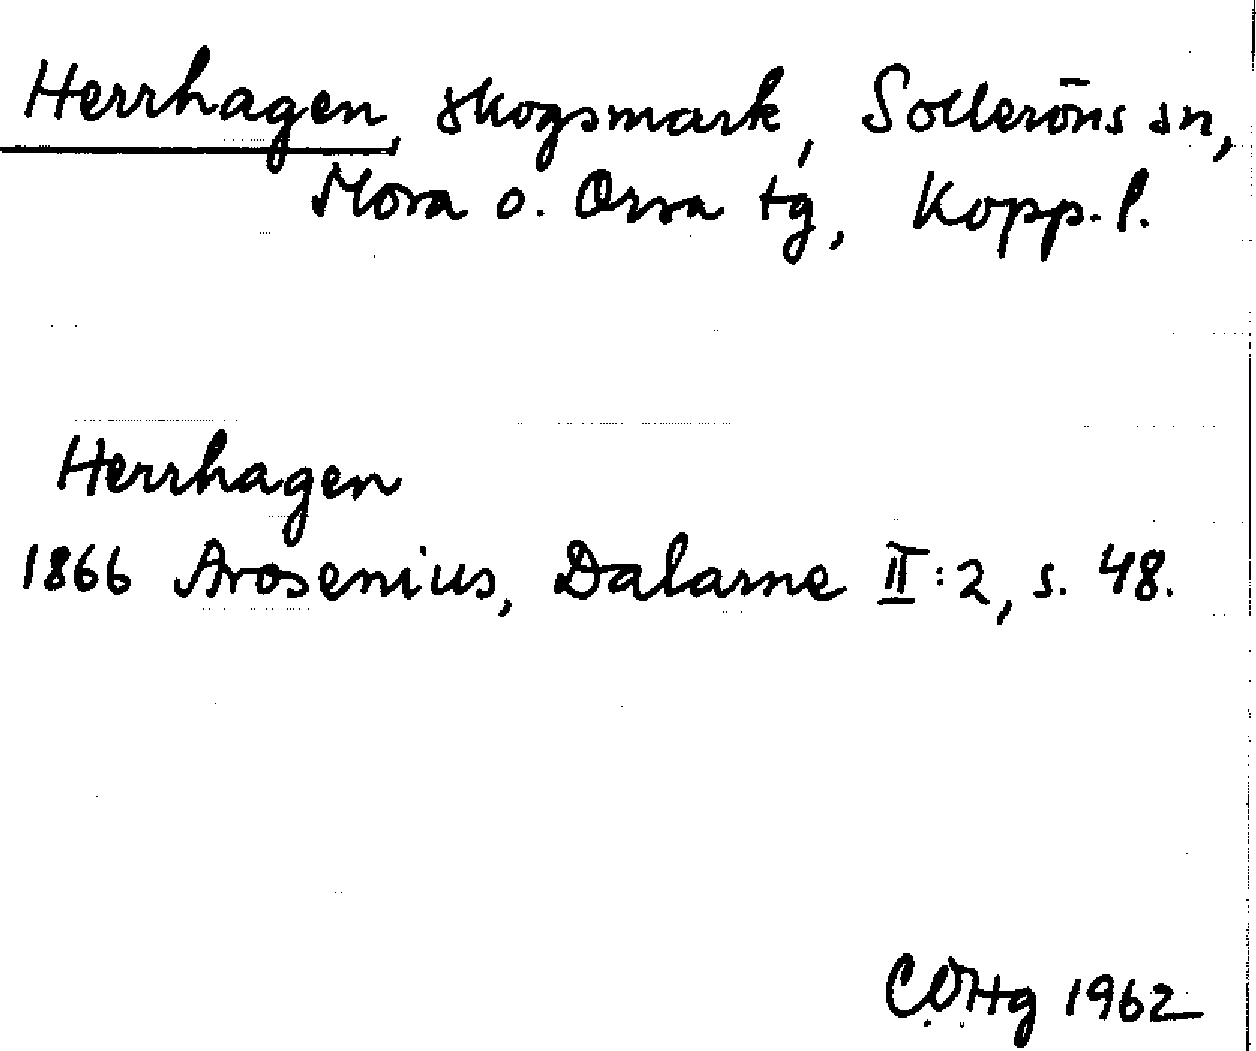 Herrhagen, skogsmark, Solleröns sn,
Mora o. Orsa tg, Kopp. l.
Herrhagen
1866 Arosenius, Dalarne II:2, s. 48.
1962